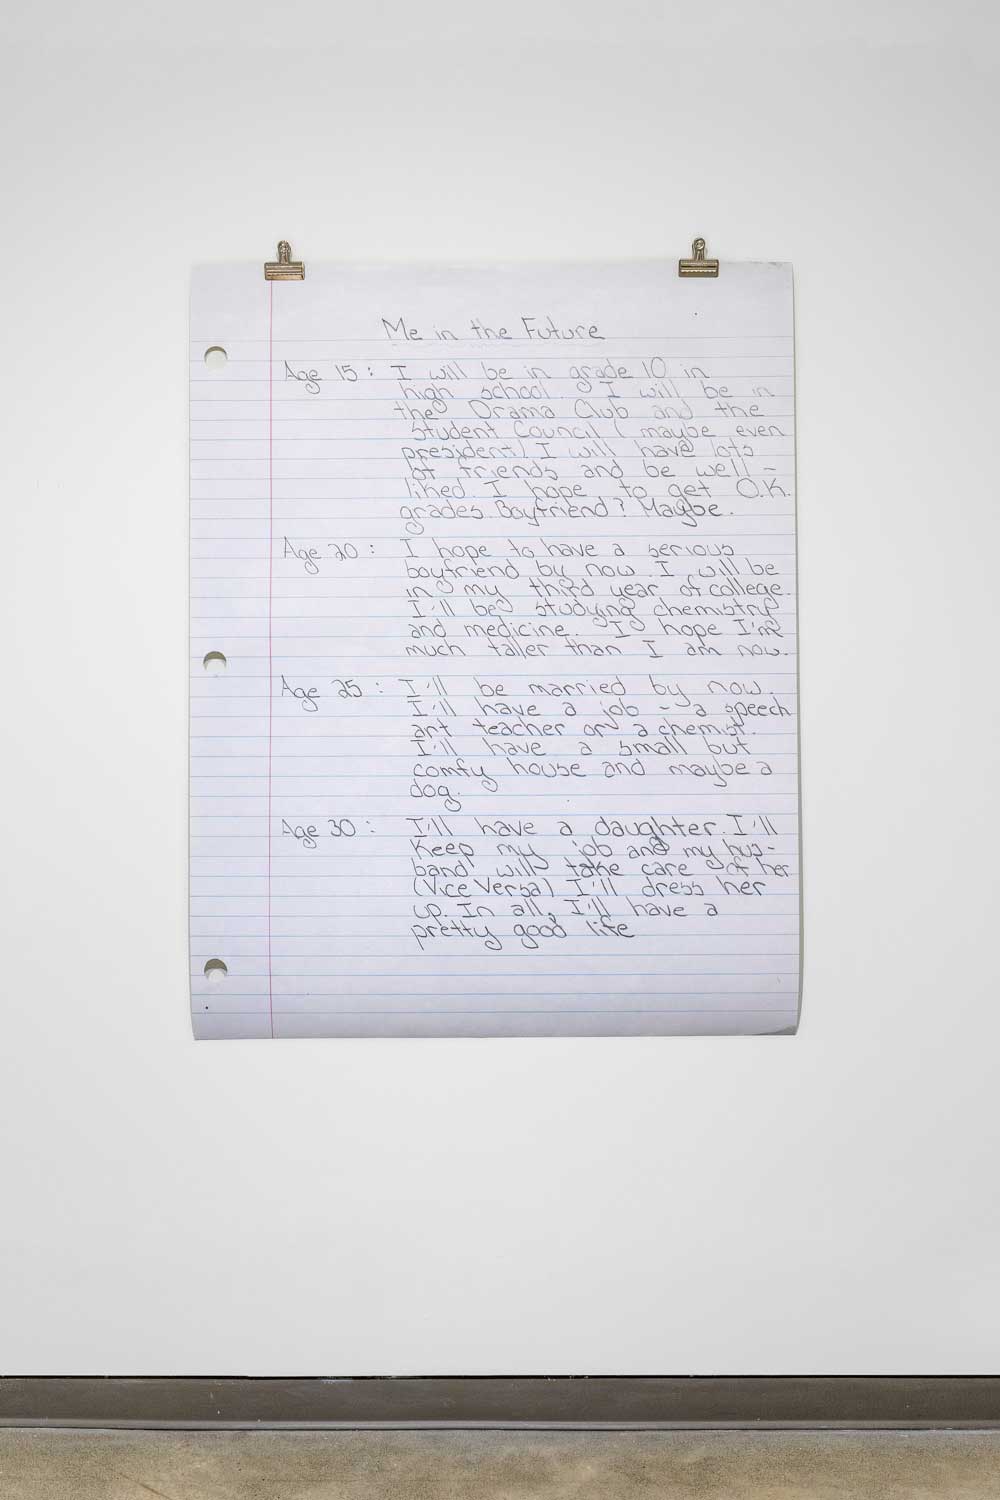 Me in the Future
Age 15 : I will be in grade 10 in
high school. I will be in
the Drama Club and the
Student Council ( maybe even
president) I will have lots
of friends and be well-
liked. I hope to get O.K.
grades. Boyfriend? Maybe.
Age 20 : I hope to have a serious
boyfriend by now. I will be
in my third year of college.
I'll be studying chemistry
and medicine. I hope I'm
much taller than I am now.
Age 25 : I'll be married by now.
I'll have a job - a speech
art teacher or a chemist.
I'll have a small but
comfy house and maybe a
dog.
Age 30 : I'll have a daughter. I'll
Keep my job and my hus-
band will take care of her
(Vice Versa) I'll dress her
up. In all, I'll have a
pretty good life